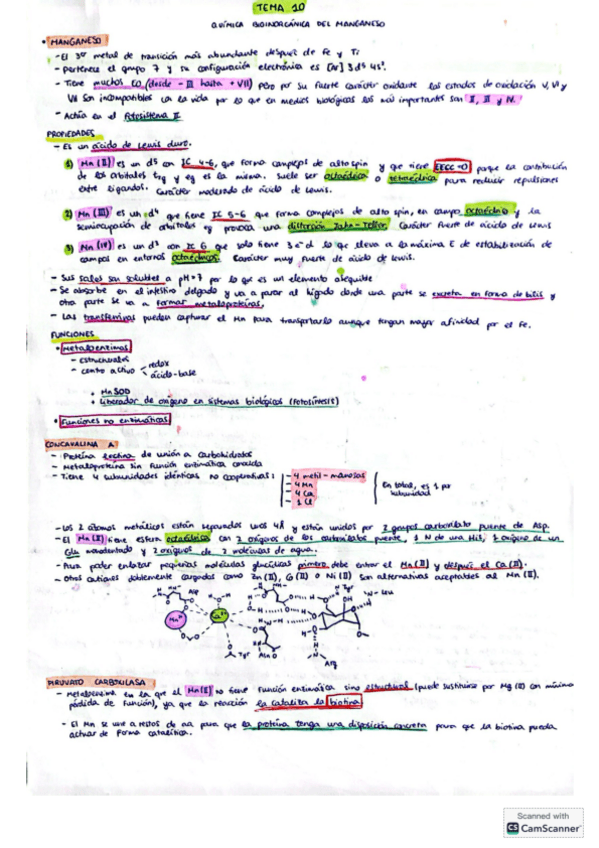 TEMA 10
QUÍMICA BIOINORGÁNICA DEL MANGANESO
• MANGANESO
- El 3er metal de transición más abundante después de Fe y Ti
- Pertenece al grupo 7 y su configuración electrónica es [Ar] 3d5 4s2.
- Tiene muchos EO (desde -III hasta +VII) pero por su fuerte carácter oxidante los estados de oxidación V, VI y
VII son incompatibles con la vida por lo que en medios biológicos los más importantes son II, III y IV.
- Actúa en el fotosistema II
PROPIEDADES
- Es un ácido de Lewis duro.
1) Mn (II) es un d5 con IC 4-6, que forma complejos de alto spin y que tiene EECC=0 porque la contribución
de los orbitales t2g y eg es la misma. Suele ser octaédrica o tetraédrica para reducir repulsiones
entre ligandos. Carácter moderado de ácido de Lewis.
2) Mn (III) es un d4 que tiene IC 5-6 que forma complejos de alto spin, en campo octaédrico y la
semiocupación de orbitales eg provoca una distorsión Jahn-Teller. Carácter fuerte de ácido de Lewis
3) Mn (IV) es un d3 con IC 6 que solo tiene 3 e- d lo que lleva a la máxima E de estabilización de
campo en entornos octaédricos. Carácter muy fuerte de ácido de Lewis.
- Sus sales son solubles a pH=7 por lo que es un elemento asequible
- Se absorbe en el intestino delgado y va a parar al hígado donde una parte se excreta en forma de bilis y
otra parte se va a formar metaloproteínas.
- Las transferrinas pueden capturar el Mn para transportarlo aunque tengan mayor afinidad por el Fe.
FUNCIONES
• Metaloenzimas
- estructurales
- centro activo redox
ácido-base
• MnSOD
• Liberador de oxígeno en sistemas biológicos (fotosíntesis)
• Funciones no enzimáticas
CONCAVALINA A
- Proteína lectina de unión a carbohidratos
- Metaloproteína sin función enzimática conocida
- Tiene 4 subunidades idénticas no cooperativas:
- 4 metil-manosas
- 4 Mn
- 4 Ca
- 1 Cl
En todos, es 1 por
subunidad
- Los 2 átomos metálicos están separados unos 4Å y están unidos por 2 grupos carboxilato puente de Asp.
- El Mn (II) tiene esfera octaédrica con 2 oxígenos de los carboxilatos puente, 1 N de una His, 1 oxígeno de un
Glu monodentado y 2 oxígenos de 2 moléculas de agua.
- Para poder enlazar pequeñas moléculas glucídicas primero debe entrar el Mn (II) y después el Ca (II).
- Otros cationes doblemente cargados como Zn (II), Co (II) o Ni (II) son alternativas aceptables al Mn (II).
Asp
Tyr
Leu
Mn2+
Ca2+
Tyr
Asn
Arg
PIRUVATO CARBOXILASA
- Metaloenzima en la que el Mn (II) no tiene función enzimática sino estructural (puede sustituirse por Mg (II) con mínima
pérdida de función), ya que la reacción la cataliza la biotina
- El Mn se une a restos de aa para que la proteína tenga una disposición concreta para que la biotina pueda
actuar de forma catalítica.
Scanned with
CS CamScanner